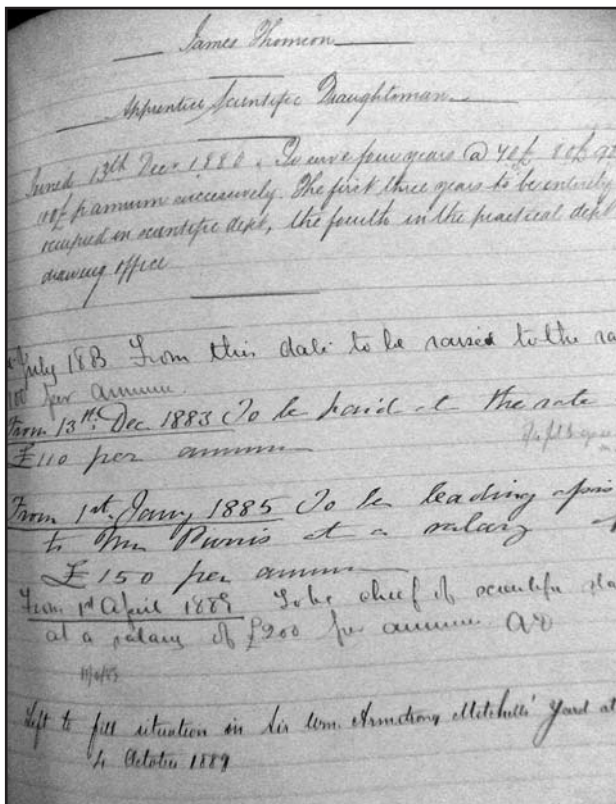 James Thomson
Apprentice Scientific Draughtsman
Joined 13th Dec. 1880. To serve four years @ 40£ 80£
110£ p annum successively. The first three years to be entirely
occupied in scientific dept, the fourth in the practical dept
drawing office
July 1883 From this date to be raised to the
100 per annum.
From 13th. Dec 1883 To be paid at the rate
£110 per annum
From 1st. Jany 1885 To be leading
to Mr at a salary
£150 per annum
From 1st April 1889 To be chief of scientific
at a salary of £200 per annum
Left to fill situation in Sir Wm. Armstrong Mitchells' Yard at
4 October 1889